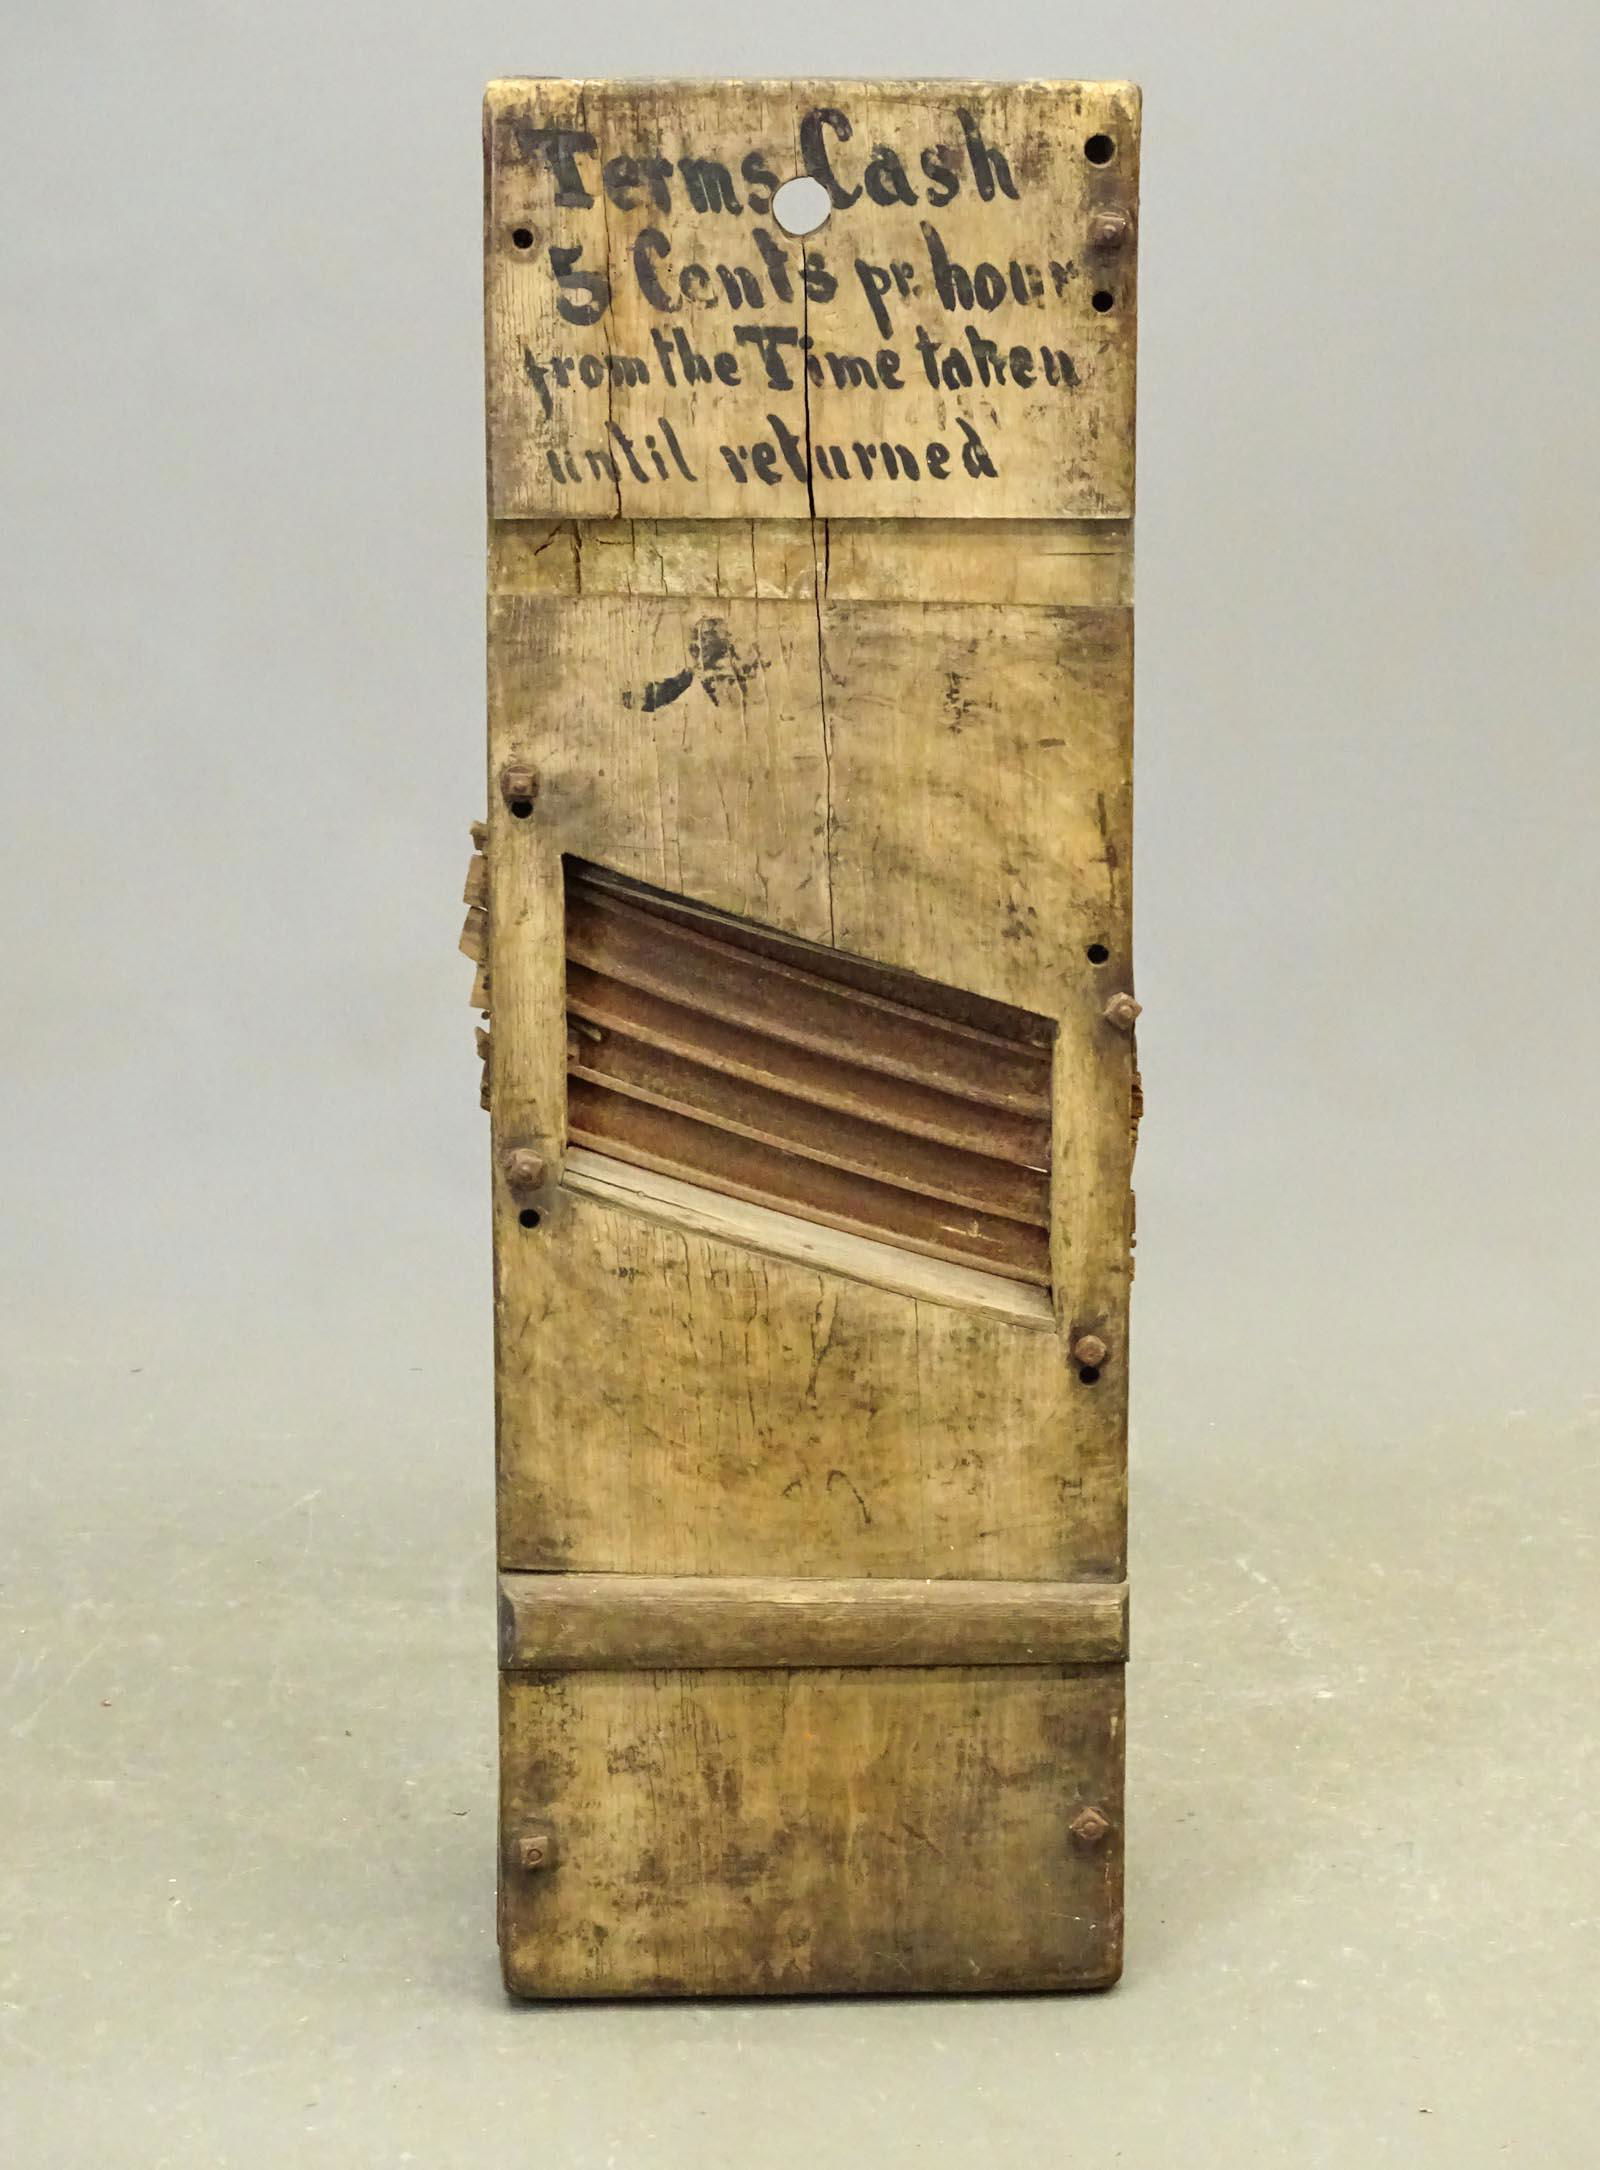 Terms Cash
5 Cents pr. hour
from the Time taken
until returned